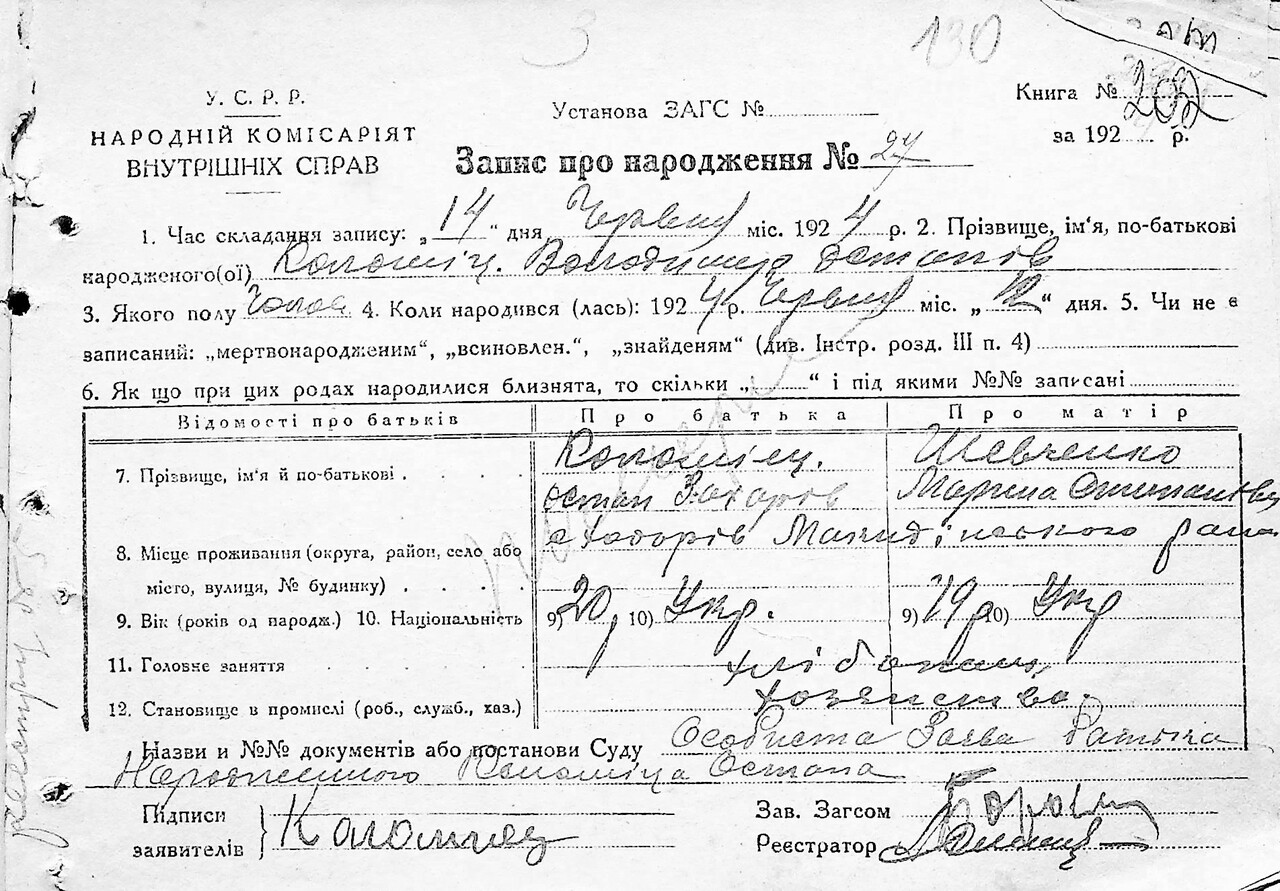 3
130
У. С. Р. Р.
НАРОДНІЙ КОМІСАРІЯТ
ВНУТРІШНІХ СПРАВ
Установа ЗАГС №
Книга № 202
за 192 р.
Запис про народження № 27
1. Час складання запису: „14“ дня Червня міс. 1924 р. 2. Прізвище, ім‘я, по-батькові
народженого(ої) Коломієц. Володимир Остапов
3. Якого полу Чолов 4. Коли народився (лась): 1924 р. Червня міс. „12“ дня. 5. Чи не є
записаний: „мертвонародженим“, „всиновлен.“, „знайденям“ (див. Інстр. розд. III п. 4)
6. Як що при цих родах народилися близнята, то скільки „ “ і під якими №№ записані
Відомості про батьків Про батька Про матір
7. Прізвище, ім‘я й по-батькові Коломієц. Шевченко
Остап Захарів Марина Степановн
8. Місце проживання (округа, район, село або місто, вулиця, № будинку) с Ходорів району
9. Вік (років од народж.) 10. Національність 9) 20, 10) Укр. 9) 19 10) Укр
11. Головне заняття хлібопашц
12. Становище в промислі (роб., служб., хаз.) хозяиство.
Назви и №№ документів або постанови Суду Особиста Заява Батька
Народженного Коломійца Остапа
Підписи
заявителів Каломиец
Зав. Загсом
Реєстратор